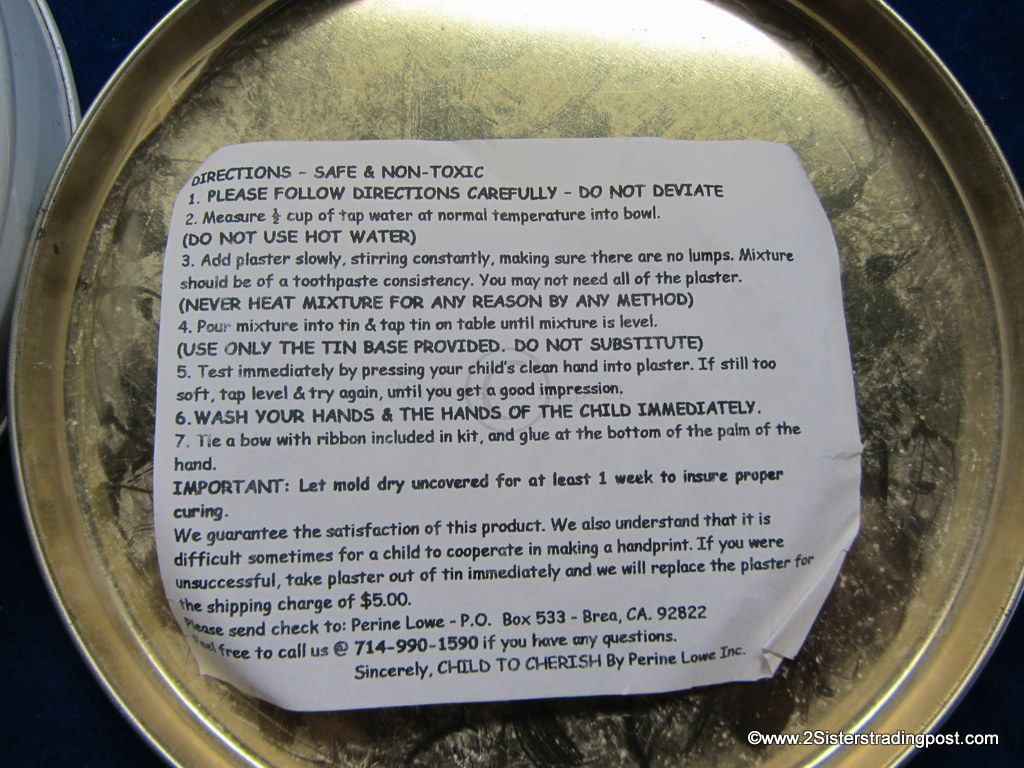 DIRECTIONS - SAFE & NON-TOXIC
1. PLEASE FOLLOW DIRECTIONS CAREFULLY - DO NOT DEVIATE
2. Measure ½ cup of tap water at normal temperature into bowl.
(DO NOT USE HOT WATER)
3. Add plaster slowly, stirring constantly, making sure there are no lumps. Mixture
should be of a toothpaste consistency. You may not need all of the plaster.
(NEVER HEAT MIXTURE FOR ANY REASON BY ANY METHOD)
4. Pour mixture into tin & tap tin on table until mixture is level.
(USE ONLY THE TIN BASE PROVIDED. DO NOT SUBSTITUTE)
5. Test immediately by pressing your child's clean hand into plaster. If still too
soft, tap level & try again, until you get a good impression.
6. WASH YOUR HANDS & THE HANDS OF THE CHILD IMMEDIATELY.
7. Tie a bow with ribbon included in kit, and glue at the bottom of the palm of the
hand.
IMPORTANT: Let mold dry uncovered for at least 1 week to insure proper
curing.
We guarantee the satisfaction of this product. We also understand that it is
difficult sometimes for a child to cooperate in making a handprint. If you were
unsuccessful, take plaster out of tin immediately and we will replace the plaster for
the shipping charge of $5.00.
Please send check to: Perine Lowe - P.O. Box 533 - Brea, CA. 92822
Feel free to call us @ 714-990-1590 if you have any questions.
Sincerely, CHILD TO CHERISH By Perine Lowe Inc.
©www.2Sisterstradingpost.com